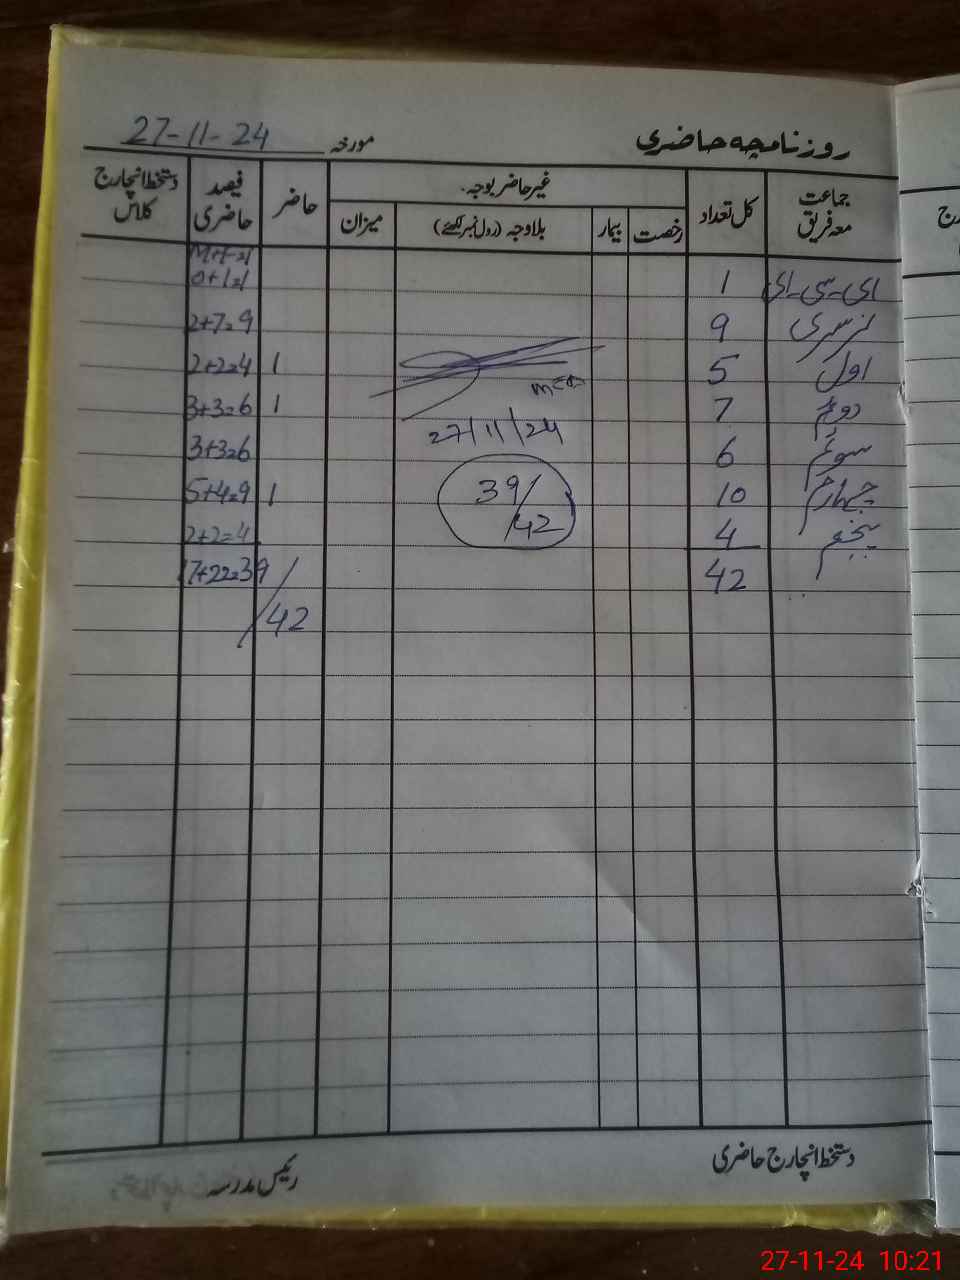 روزنامچہ حاضری
مورخہ 27-11-24
جماعت معہ فریق
کل تعداد
غیر حاضر بوجہ۔
رخصت
بیمار
بلاوجہ (رول نمبر لکھئے)
میزان
حاضر
فیصد حاضری
دستخط انچارج کلاس
M+F=T
ای۔سی۔ای 1 0+1=1
نرسری 9 2+7=9
اول 5 1 2+2=4
دوئم 7 1 3+3=6
سوئم 6 3+3=6
چہارم 10 1 5+4=9
پنجم 4 2+2=4
42 17+22=39/42
27/11/24
39/42
دستخط انچارج حاضری
رئیس مدرسہ
27-11-24 10:21